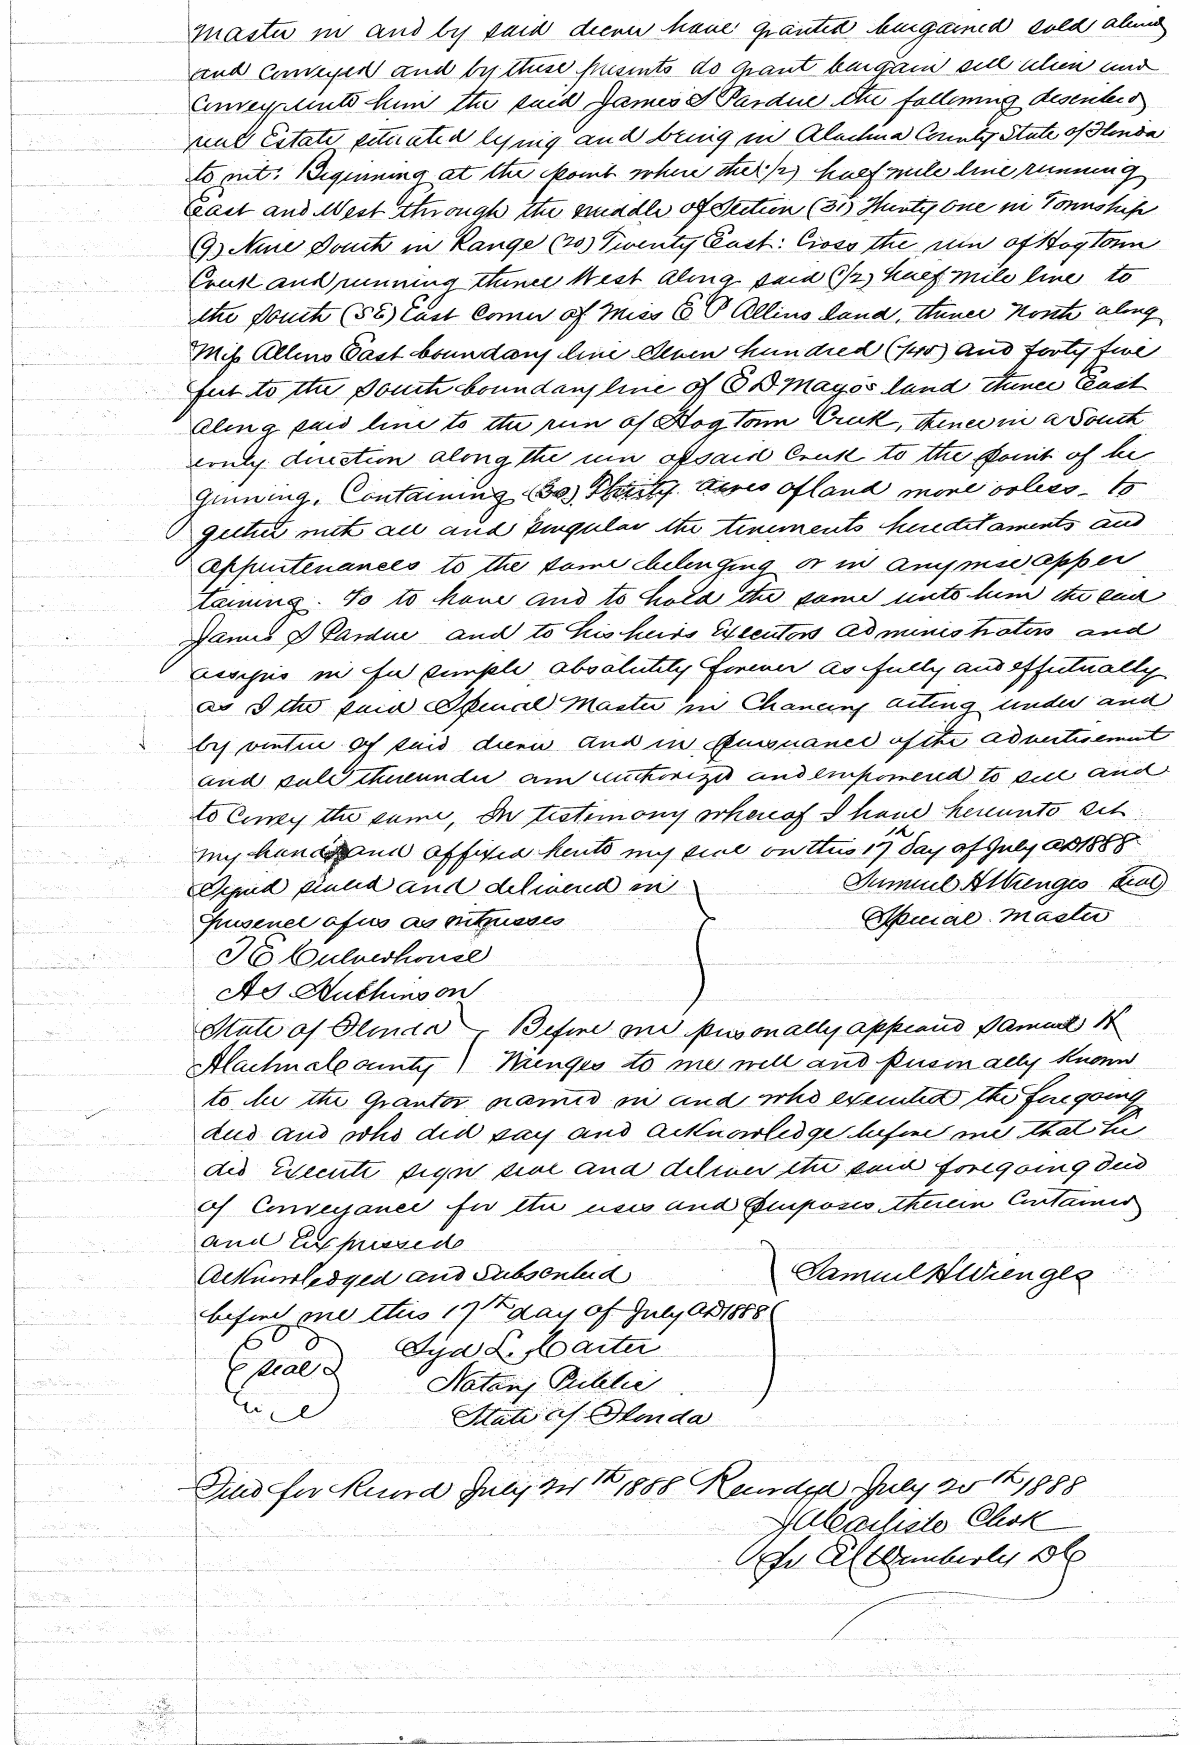 Master in and by said decree have granted bargained sold aliened
and conveyed and by these presents do grant bargain sell alien and
convey unto him the said James S Pardue the following described
real Estate situated lying and being in Alachua County State of Florida
to wit: Beginning at the point where the (1/2) half mile line running
East and West through the middle of Section (31) Thirty one in Township
(9) Nine South in Range (20) Twenty East: Cross the run of Hogtown
Creek and running thence West along said (1/2) half mile line to
the South (SE) East Corner of Miss E P Allins land, thence North along
Miss Allins East boundary line Seven hundred (745) and forty five
feet to the South boundary line of E D Mayo's land thence East
along said line to the run of Hogtown Creek, thence in a South
ernly direction along the run of said Creek to the point of be
ginning. Containing (30) Thirty Acres of land more or less. To
gether with all and singular the tenements hereditaments and
appurtenances to the same belonging or in anywise apper
taining. To to have and to hold the same unto him the said
James S Pardue and to his heirs Executors administrators and
assigns in fee simple absolutely forever as fully and effectually
as I the said Special Master in Chancery acting under and
by virtue of said decree and in pursuance of the advertisement
and sale thereunder am authorized and empowered to sell and
to Convey the same, In testimony whereof I have hereunto set
my hand and affixed hereto my seal on this 17th day of July AD 1888
Signed sealed and delivered in Samuel H Wienges Seal
presence of us as witnesses Special Master
Culverhouse
A S Hutchinson
State of Florida Before me personally appeared Samuel H
Alachua County Wienges to me well and personally known
to be the Grantor named in and who executed the foregoing
deed and who did say and acknowledge before me that he
did Execute sign seal and deliver the said foregoing deed
of Conveyance for the uses and purposes therein Contained
and Expressed
Acknowledged and Subscribed Samuel H Wienges
before me this 17th day of July AD 1888
Syd L. Carter
seal
Notary Public
State of Florida
Filed for Record July 24th 1888 Recorded July 25th 1888
J A Carlisle Clerk
Wimberly DC